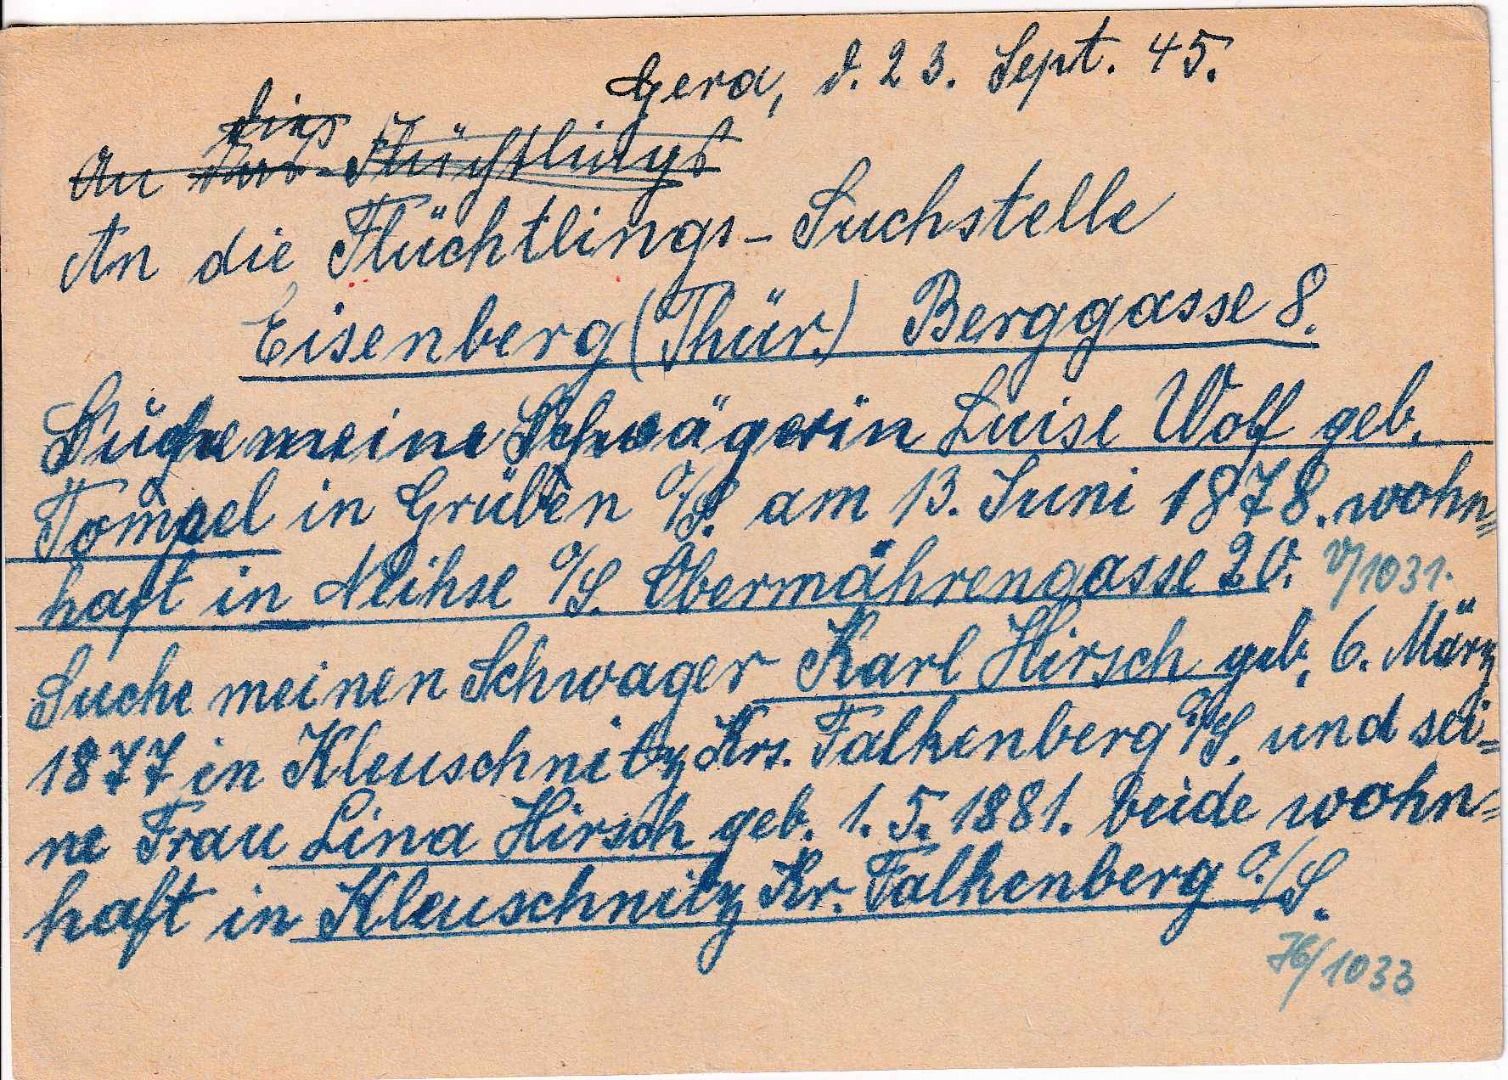 Gera, d. 23. Sept. 45.
An Flüchtlings
An die Flüchtlings-Suchstelle
Eisenberg (Thür.) Berggasse 8.
Suche meine Schwägerin Luise Wolf geb.
Tompel in Grüben O/S. am 13. Juni 1878. wohn=
haft in Neihse O/S. Obermährengasse 20. W/1031.
Suche meinen Schwager Karl Hirsch geb. 6. März
1877 in Kleuschnitz Krs. Falkenberg O/S. und sei=
ne Frau Lina Hirsch geb. 1.5.1881. beide wohn=
haft in Kleuschnitz Kr. Falkenberg O./S.
H/1033